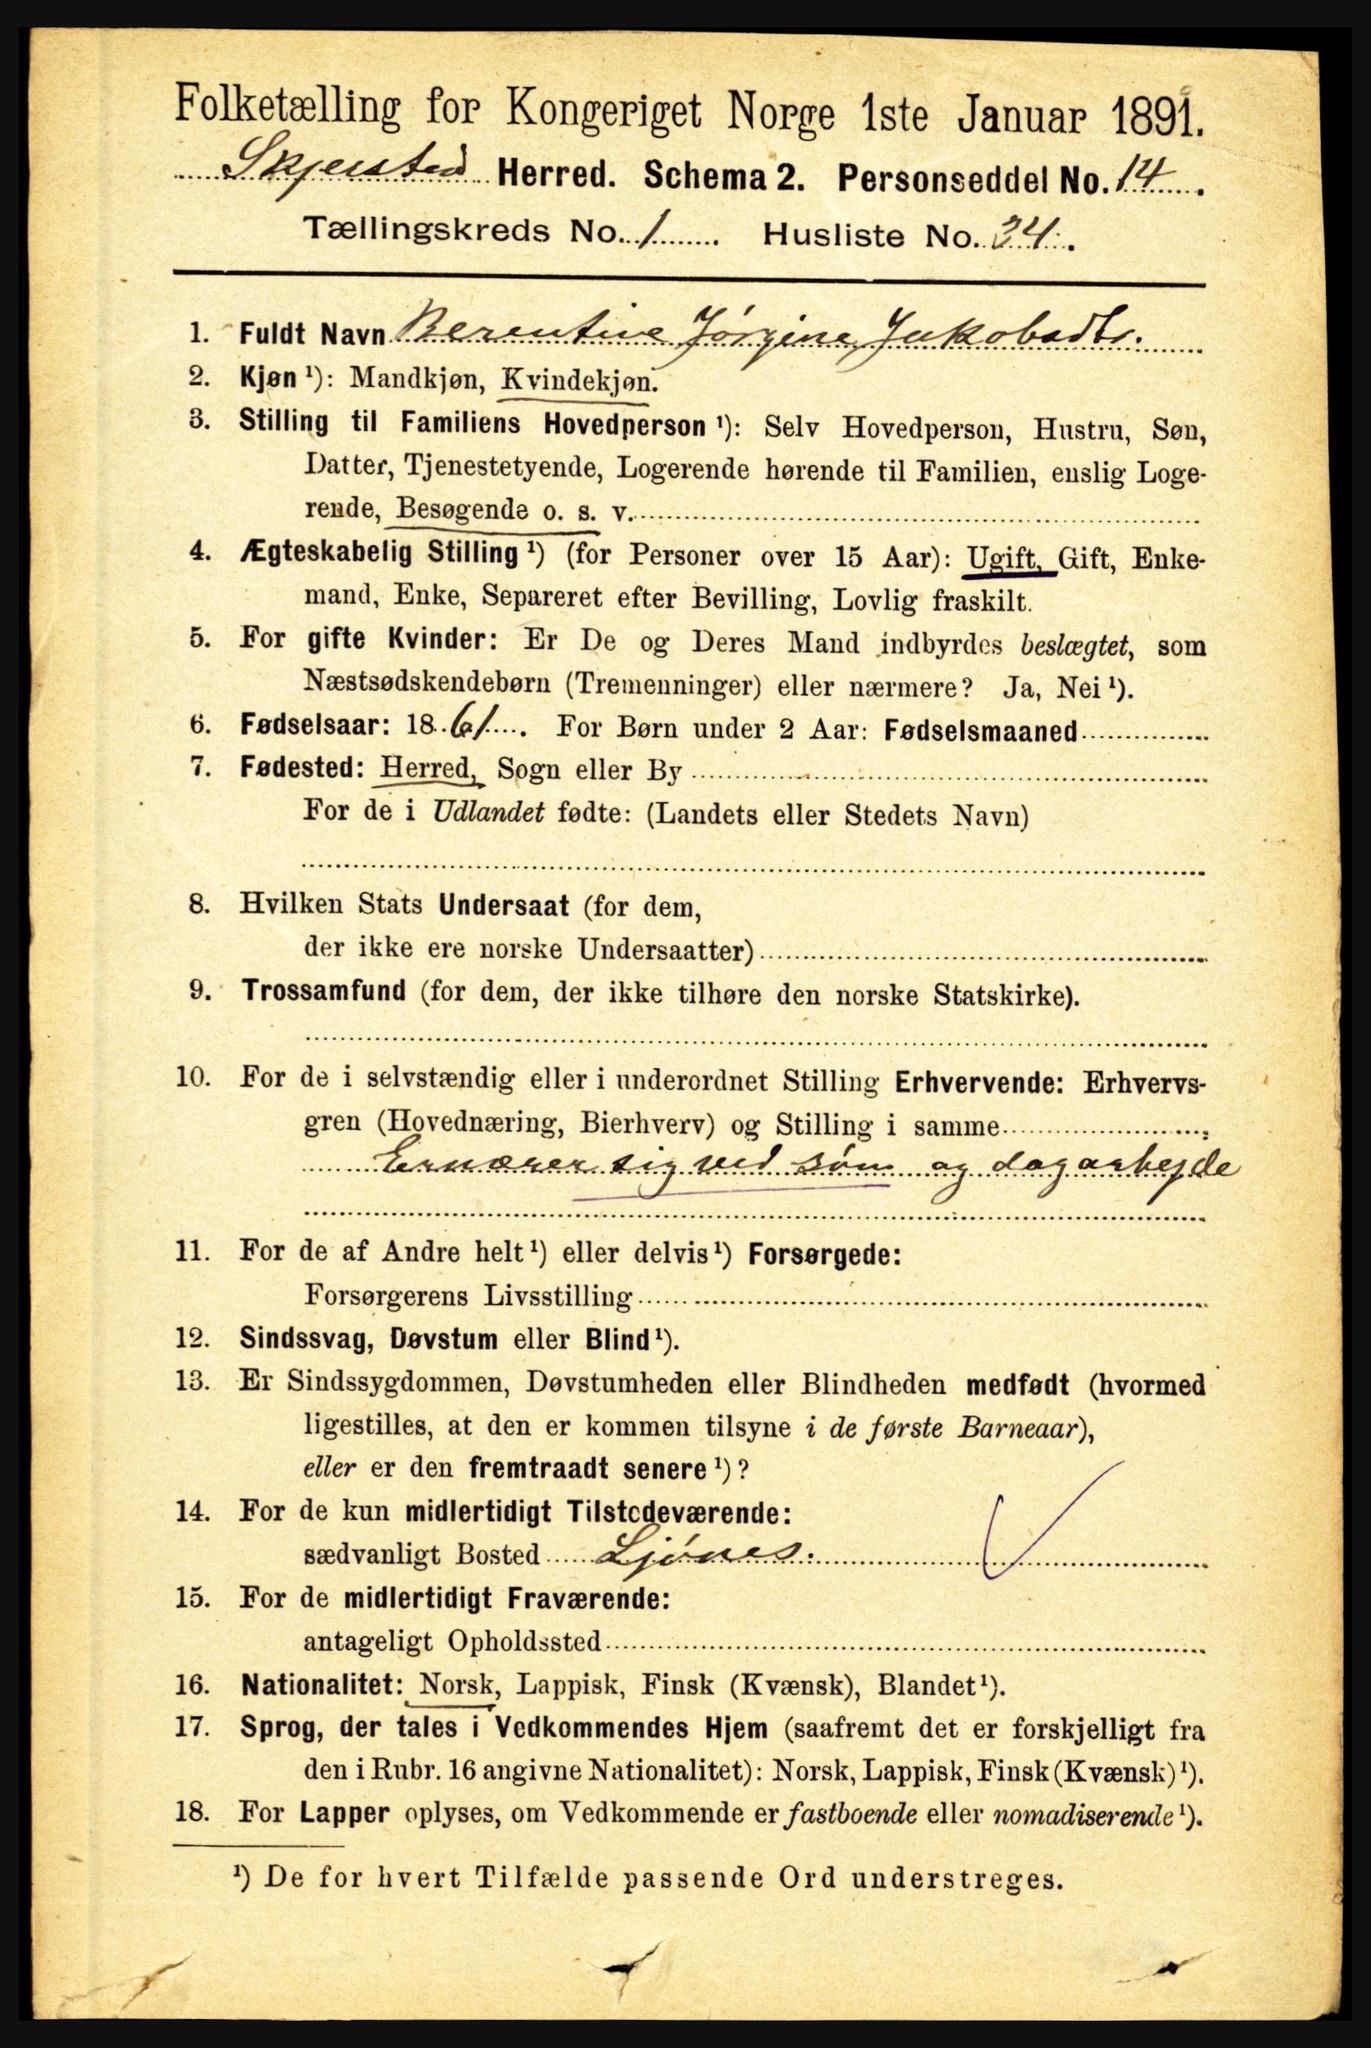 Folketælling for Kongeriget Norge 1ste Januar 1891.
Skjerstad Herred. Schema 2. Personseddel No. 14.
Tællingskreds No. 1. Husliste No. 34.
1. Fuldt Navn Berentine Jørgine Jakobsdtr.
2. Kjøn ¹): Mandkjøn, Kvindekjøn.
3. Stilling til Familiens Hovedperson ¹): Selv Hovedperson, Hustru, Søn,
Datter, Tjenestetyende, Logerende hørende til Familien, enslig Loge-
rende, Besøgende o. s. v.
4. Ægteskabelig Stilling ¹) (for Personer over 15 Aar): Ugift, Gift, Enke-
mand, Enke, Separeret efter Bevilling, Lovlig fraskilt.
5. For gifte Kvinder: Er De og Deres Mand indbyrdes beslægtet, som
Næstsødskendebørn (Tremenninger) eller nærmere? Ja, Nei ¹).
6. Fødselsaar: 1861. For Børn under 2 Aar: Fødselsmaaned
7. Fødested: Herred, Sogn eller By
For de i Udlandet fødte: (Landets eller Stedets Navn)
8. Hvilken Stats Undersaat (for dem,
der ikke ere norske Undersaatter)
9. Trossamfund (for dem, der ikke tilhøre den norske Statskirke).
10. For de i selvstændig eller i underordnet Stilling Erhvervende: Erhvervs-
gren (Hovednæring, Bierhverv) og Stilling i samme
Ernærer sig ved søm og dagarbejde
11. For de af Andre helt ¹) eller delvis ¹) Forsørgede:
Forsørgerens Livsstilling
12. Sindssvag, Døvstum eller Blind ¹).
13. Er Sindssygdommen, Døvstumheden eller Blindheden medfødt (hvormed
ligestilles, at den er kommen tilsyne i de første Barneaar),
eller er den fremtraadt senere ¹)?
14. For de kun midlertidigt Tilstedeværende:
sædvanligt Bosted Ljønes.
15. For de midlertidigt Fraværende:
antageligt Opholdssted
16. Nationalitet: Norsk, Lappisk, Finsk (Kvænsk), Blandet ¹).
17. Sprog, der tales i Vedkommendes Hjem (saafremt det er forskjelligt fra
den i Rubr. 16 angivne Nationalitet): Norsk, Lappisk, Finsk (Kvænsk) ¹).
18. For Lapper oplyses, om Vedkommende er fastboende eller nomadiserende ¹).
¹) De for hvert Tilfælde passende Ord understreges.